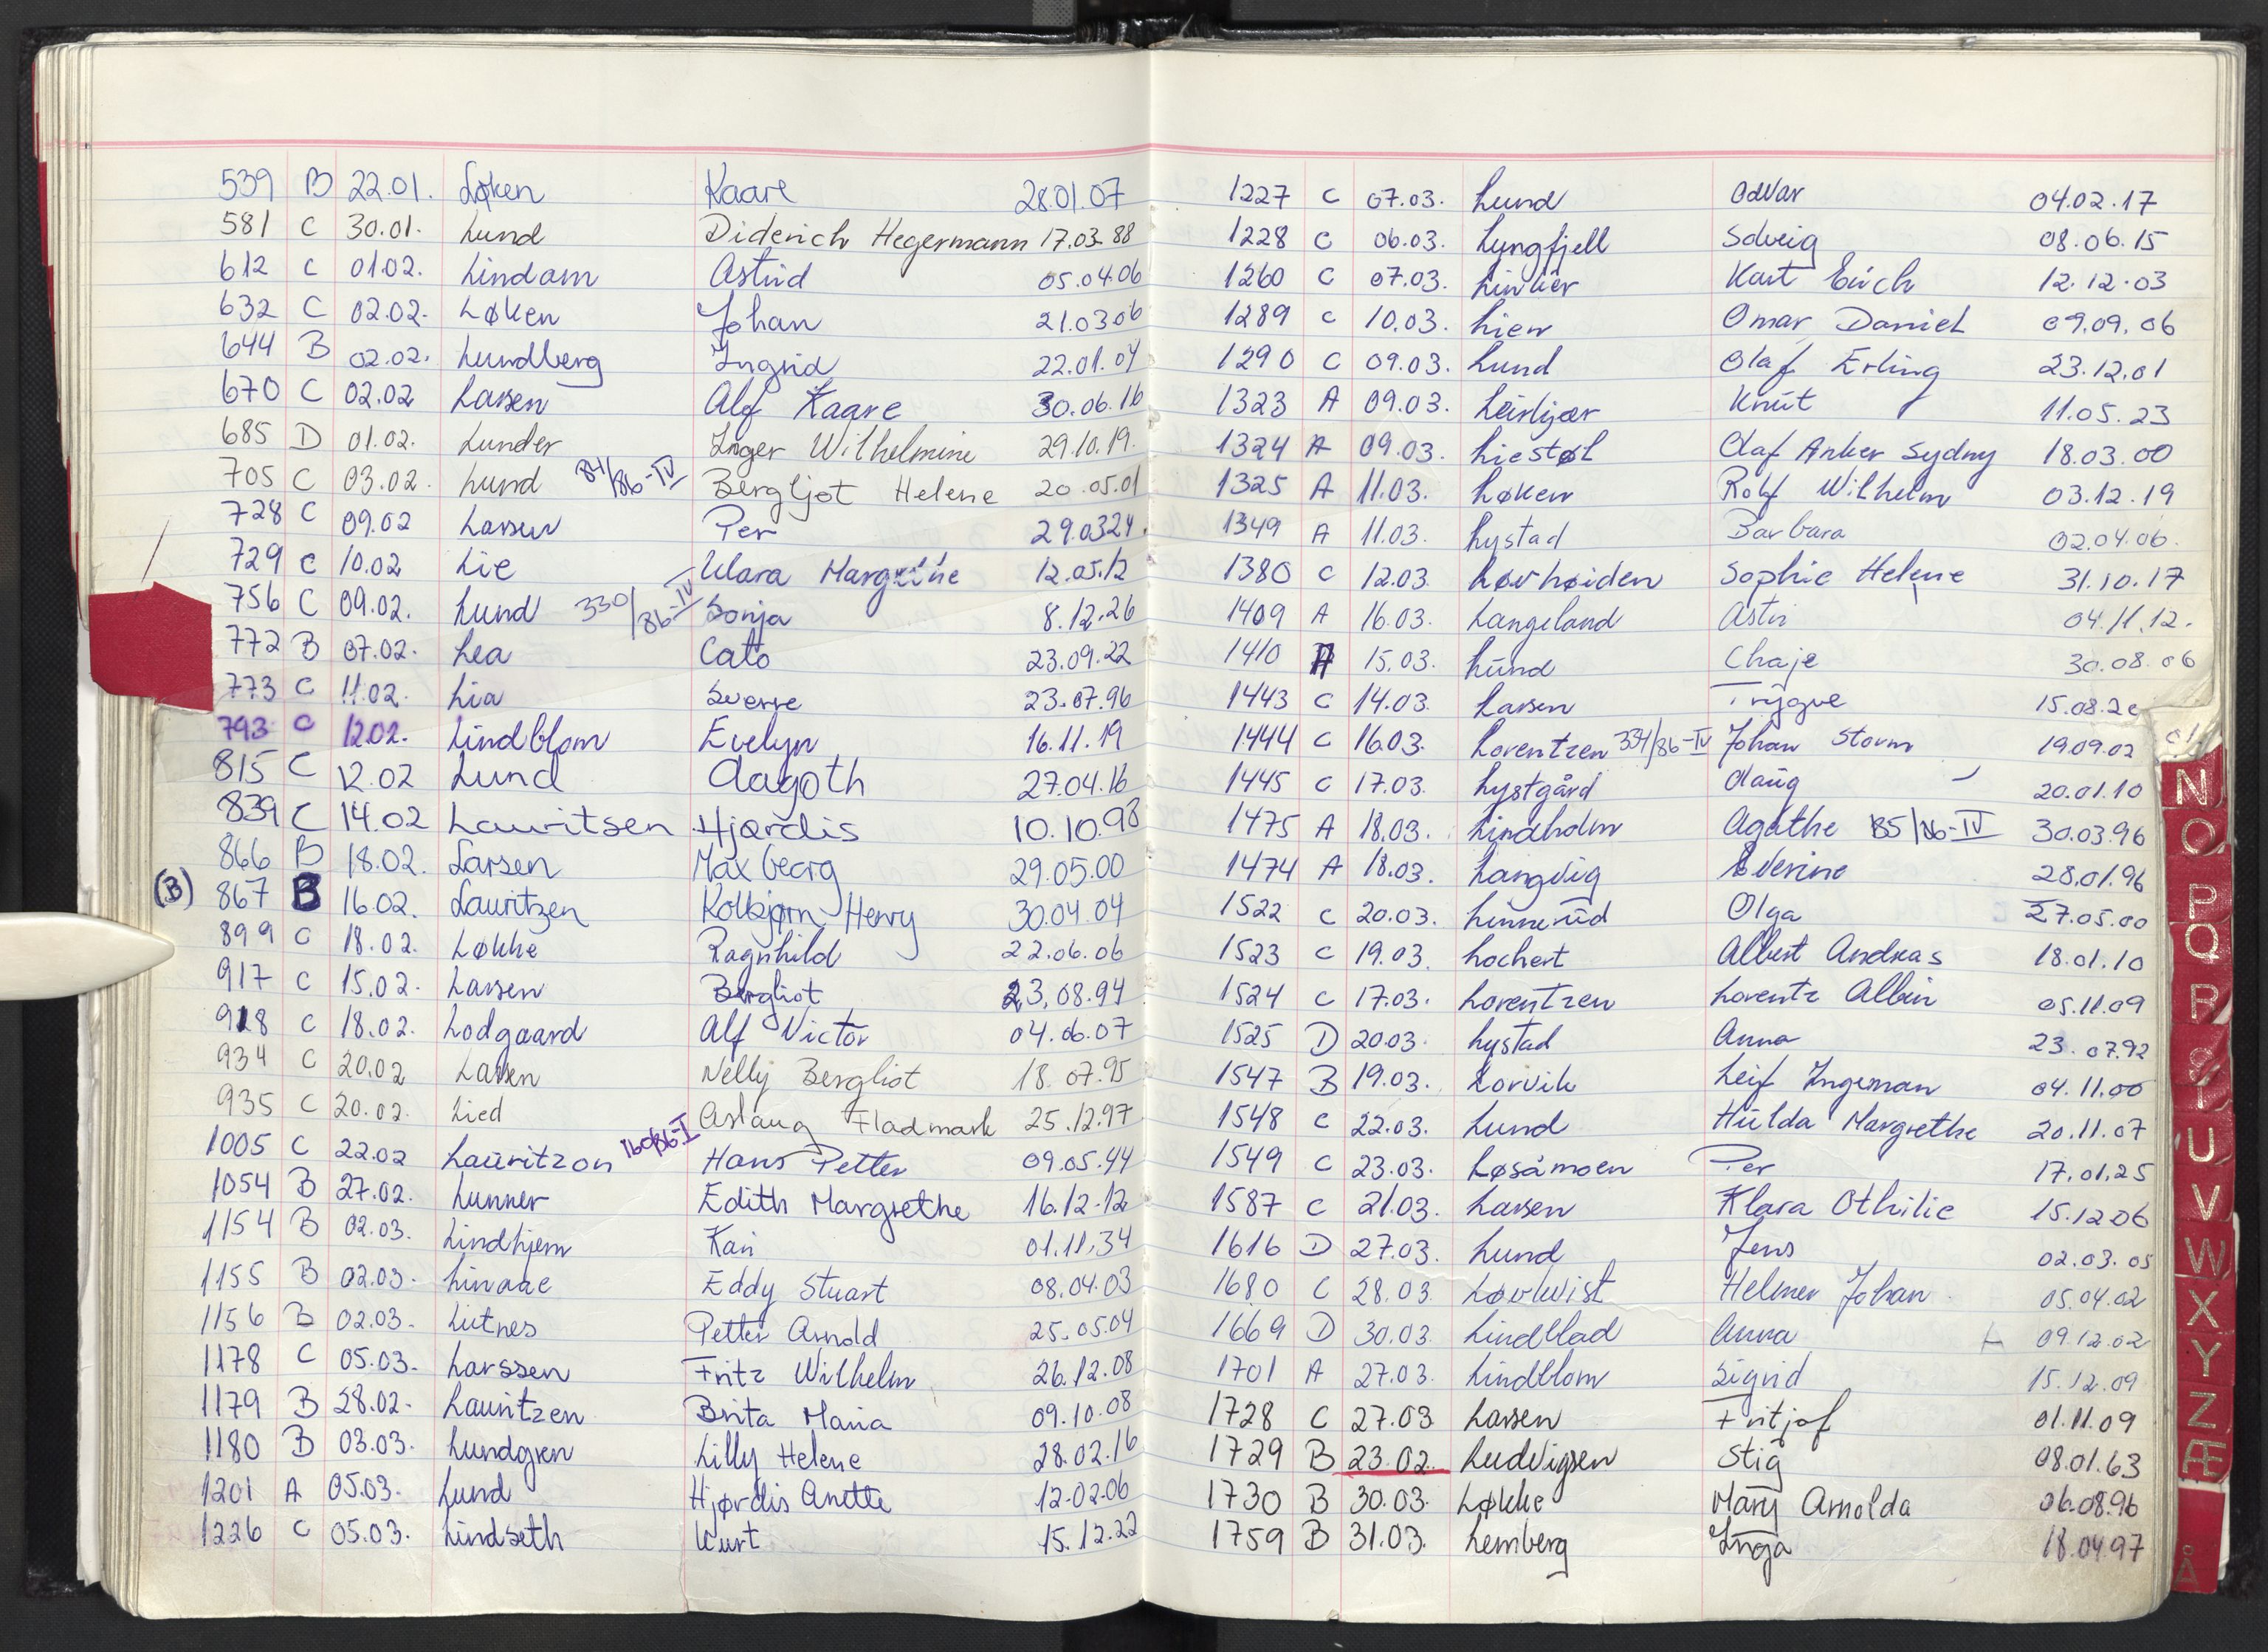 539 B 22.01. Løken Kaare 28.01.07
581 C 30.01. Lund Diderich Hegermann 17.03.88
612 C 01.02. Lindam Astrid 05.04.06
632 C 02.02. Løken Johan 21.03.06
644 B 02.02. Lundberg Ingrid 22.01.04
670 C 02.02 Larsen Alf Kaare 30.06.16
685 D 01.02. Lunder Inger Wilhelmine 29.10.19.
705 C 03.02. Lund 84/86-IV Bergljot Helene 20.05.01
728 C 09.02 Larsen Per 29.03.24.
729 C 10.02 Lie Klara Margrethe 12.05.12
756 C 09.02. Lund 330/86-IV Sonja 8.12.26
772 B 07.02. Lea Cato 23.09.22
773 C 11.02. Lia Sverre 23.07.96
793 C 12.02. Lindblom Evelyn 16.11.19
815 C 12.02 Lund Dagoth 27.04.16
839 C 14.02 Lauritsen Hjørdis 10.10.98
866 B 18.02. Larsen Max Georg 29.05.00
(B) 867 B 16.02. Lauritzen Kolbjørn Henry 30.04.04
899 C 18.02. Løkke Ragnhild 22.06.06
917 C 15.02. Larsen Bergliot 23.08.94
918 C 18.02. Lodgaard Alf Victor 04.06.07
934 C 20.02 Larsen Nelly Bergliot 18.07.95
935 C 20.02. Lied Aslaug Fladmark 25.12.97
1005 C 22.02 Lauritzon 160/86-I Hans Petter 09.05.44
1054 B 27.02. Lunner Edith Margrethe 16.12.12
1154 B 02.03. Lindhjem Kai 01.11.34
1155 B 02.03. Linaae Eddy Stuart 08.04.03
1156 B 02.03. Lutnes Petter Arnold 25.05.04
1178 C 05.03. Larssen Fritz Wilhelm 26.12.08
1179 B 28.02. Lauritzen Brita Maria 09.10.08
1180 B 03.03. Lundgren Lilly Helene 28.02.16
1201 A 05.03. Lund Hjørdis Anette 12.02.06
1226 C 05.03. Lindseth Kurt 15.12.22
1227 C 07.03. Lund Odvar 04.02.17
1228 C 06.03. Lyngfjell Solveig 08.06.15
1260 C 07.03. Kurt Erich 12.12.03
1289 C 10.03. Lien Omar Daniel 09.09.06
1290 C 09.03. Lund Olaf Erling 23.12.01
1323 A 09.03. Leirkjær Knut 11.05.23
1324 A 09.03. Liestøl Olaf Anker Sydny 18.03.00
1325 A 11.03. Løken Rolf Wilhelm 03.12.19
1349 A 11.03. Lystad Barbara 02.04.06.
1380 C 12.03. Løvhøiden Sophie Helene 31.10.17
1409 A 16.03. Langeland Astri 04.11.12.
1410 A 15.03. Lund Chaje 30.08.06
1443 C 14.03. Larsen Trygve 15.08.20
1444 C 16.03. Lorentzen 334/86-IV Johan Storm 19.09.02
1445 C 17.03. Lystgård Olaug 20.01.10
1475 A 18.03. Lindholm Agathe 185/86-IV 30.03.96
1474 A 18.03. Langvig Severine 28.01.96
1522 C 20.03. Linnerud Olga 27.05.00
1523 C 19.03. Lochert Albert Andreas 18.01.10
1524 C 17.03. Lorentzen Lorentz Albin 05.11.09
1525 D 20.03. Lystad Anna 23.07.92
1547 B 19.03. Lorvik Leif Ingeman 04.11.00
1548 C 22.03. Lund Hulda Margrethe 20.11.07
1549 C 23.03. Løsåmoen Per 17.01.25
1587 C 21.03. Larsen Klara Othilie 15.12.06
1616 D 27.03. Lund Jens 02.03.05
1680 C 28.03. Løvkvist Helmer Johan 05.04.02
1669 D 30.03. Lindblad Anna 09.12.02
1701 A 27.03. Lindblom Sigrid 15.12.09
1728 C 27.03 Larsen Fritjof 01.11.09
1729 B 23.02. Ludvigsen Stig 08.01.63
1730 B 30.03. Løkke Mary Arnolda 06.08.96
1759 B 31.03. Lemberg Inga 18.04.97
N
O
P
Q
R
S
T
U
V
W
X
Y
Z
Æ
Å